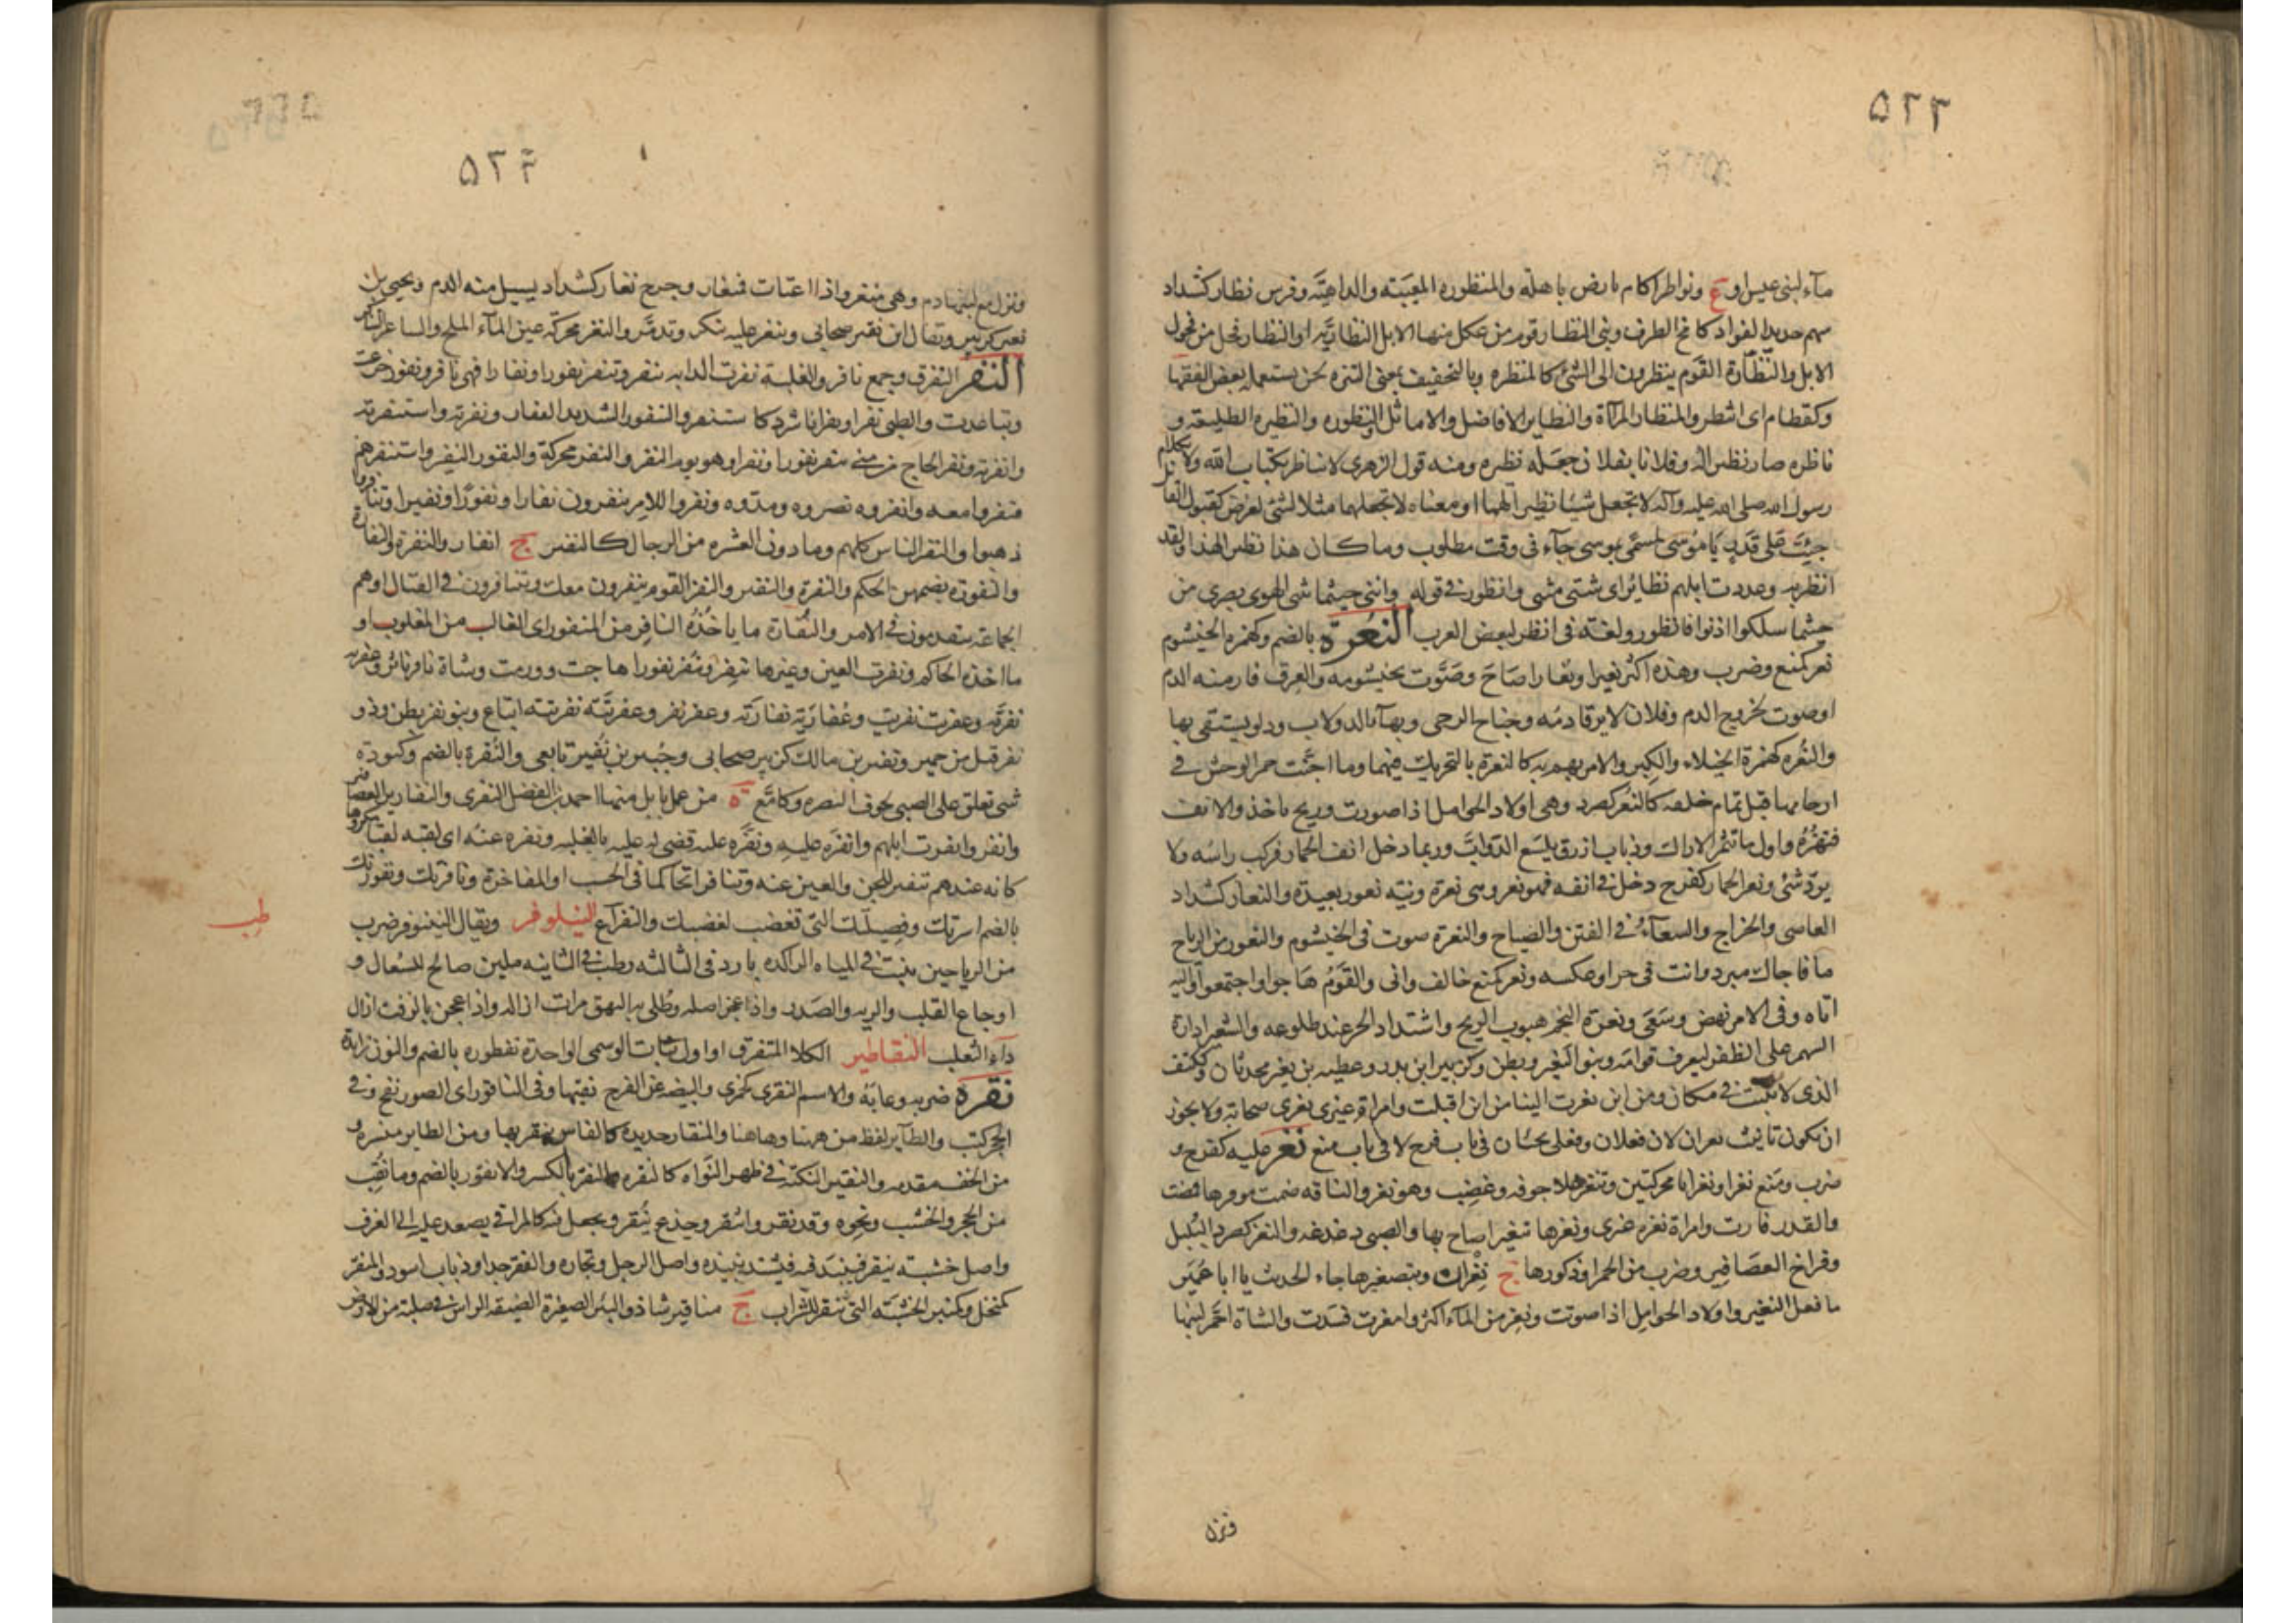 ۵۲۳
مآء لبنى عبس او ع ونواظر اكام بارض باهلة والمنظوره المعيبته والداهيته وفرس نظار كشداد
سهم حديد الفواد كامح الطرف وبنى النظار قوم من عكل منها الابل النظاريه او النظار فحل من فحول
الابل والنظارة القوم ينظرون الى الشئ كالمنظره وبالتخفيف بمعنى التنزه لحن يستعمله بعض الفقها
وكقطام اى انتظر والمنظار المرآة والنظاير الافاضل والاماثل والنظوره والنظيره الطليعته و
ناظره صار نظيرا له وفلانا بفلان جعله نظيره ومنه قول الزهرى لا تناظر بكتاب الله ولا بكلام
رسول الله صلى الله عليه وآله لا تجعل شيئا نظيرا لهما او معناه لا تجعلهما مثلا لشئ لغرض كقول القائل
جئت على قدر يا موسى لمسمى بموسى جآء فى وقت مطلوب وما كان هذا نظيرا لهذا ولقد
انظر به وعددت ابلهم نظائر اى مثنى مثنى وانظور فى قوله وانني حيثما ثنى الهوى بصرى من
حيثما سلكوا ادنوا فانظور ولغته فى انظر لبعض العرب النعرة بالضم وكهمزه الخيشوم
نعر كمنع وضرب وهذه اكثر نعيرا ونعارا صاح وصوت بخيشومه والعرق فار منه الدم
او صوت لخروج الدم وفلان لا يرقا دمه وجناح الرحى وبهآء الدولاب ودلو يستقى بها
والنعره كهمزة الخيلاء والكبر والامر يهم به كالنعرة بالتحريك فيهما وما اجنت حمر الوحش فى
ارحامها قبل تمام خلقه كالنعر كصرد وهى اولاد الحوامل اذا صورت وريح ياخذ والانف
فتهزه واول ما تثمر الاراك وذباب ازرق يلسع الدواب وربما دخل انف الحمار فركب راسه ولا
يرده شئ ونعر الحمار كفرح دخل فى انفه فهو نعر وهى نعرة ونيته نعور بعيدة والنعار كشداد
العاصى والخراج والسعآء فى الفتن والصياح والنعرة صوت فى الخيشوم والنعور من الرياح
ما فاجاك ببرد وانت فى حر او عكسه ونعر كمنع خالف وابى والقوم هاجوا واجتمعوا واليه
اتاه وفى الامر نهض وسعى ونعرة النجم هبوب الريح واشتداد الحر عند طلوعه والتنعير ادارة
السهم على الظفر ليعرف قوامه وبنو النعير وبطن وكزبير ابن بدر وعطيه بن نعير محدثان وككتف
الذى لا يثبت فى مكان ومن اين نعرت الينا من اين اقبلت وامراة غيرى نعرى صخابة ولا يجوز
ان يكون تانيث نعران لان فعلان وفعلى يجيئان فى باب فرح لا فى باب منع نغر عليه كفرح و
ضرب ومنع نغرا ونغرانا محركتين وتنغر غلا جوفه وغضب وهو نغر والناقه ضمت موخرها فمضت
والقدر فارت وامراة نغره غيرى ونغرها تنغيرا صاح بها والصبى دغدغه والنغر كصرد البلبل
وفراخ العصافير وضرب من الحمر او ذكورها ج نغران وبتصغيرها جاء الحديث يا ابا عمير
ما فعل النغير واولاد الحوامل اذا صوتت ونغر من المآء اكثر وامغرت فسدت والشاة احمر لبنها
ونزل
۵۲۴
ونزل مع لبنها دم وهى منغر واذا اعتادت فمنغار وجرح نغار كشداد يسيل منه الدم ويحيى بن
نغير كزبير ويقال ابن نفير صحابى وينغر عليه تنكر وتذمر والنغر محركة عين المآء الملح
النفر التفرق وجمع نافر والغلبة نفرت الدابه تنفر وتنفر نفورا ونفارا فهى نافر ونفور جزعت
وتباعدت والظبى نفرا ونفرانا شرد كاستنفر والنفور الشديد النفار ونفرته واستنفرته
وانفرته ونفر الحاج من منى ينفر نفورا ونفرا وهو يوم النفر والنفر محركة والنفور النفير واستنفرهم
فنفروا معه وانفروه نصروه ومدوه ونفروا للامر ينفرون نفارا ونفورا ونفيرا وتنافروا
ذهبوا والنفر الناس كلهم وما دون العشره من الرجال كالنفير ج انفار والنفرة والنفارة
والنفوره بضمهن الحكم والنفرة والنفير والنفر القوم ينفرون معك ويتنافرون فى القتال او هم
الجماعة يتقدمون فى الامر والنفارة ما ياخذه النافر من المنفور اى الغالب من المغلوب او
ما اخذه الحاكم ونفرت العين وغيرها تنفر وتنفر نفورا هاجت وورمت وشاة نافر ناثر وعفريه
نفريه وعفريت نفريت وعفارية نفارية وعفر نفر وعفريته نفريته اتباع وبنو نفر بطن وذو
نفر قيل من حمير ونفير بن مالك كزبير صحابى وجبير بن نفير تابعى والنفرة بالضم وكتوده
شئ تعلق على الصبى لخوف النصره وكامع ة من عمل بابل منها احمد بن الفضل النفرى والنفارير العصافير
وانفروا نفرت ابلهم وانفره عليه ونفره عليه قضى له عليه بالغلبه ونفره عنه اى لقبه لقبا مكروها
كانه عندهم تنفير للجن والعين عنه وتنافرا تحاكما فى الحسب او المفاخرة ونافرتك ونفورتك
بالضم اسرتك وفصيلتك التى تغضب لغضبك والنفرآء ع النيلوفر ويقال النينوفر ضرب
طب
من الرياحين ينبت فى المياه الراكده بارد فى الثالثه رطب فى الثانيه ملين صالح للسعال و
اوجاع القلب والريه والصدر واذا عجن اصله وطلى به البهق مرات ازاله واذا عجن بالزفت ازال
دآء الثعلب النفاطير الكلا المتفرق او اول نبات الوسمى الواحدة نفطوره بالضم والنون زايدة
نقره ضربه وعابه والاسم النقرى كجمزى والبيضه عن الفرخ نقبها وفى الناقور اى الصور نفخ وفى
الحجر كتب والطآير لقط من ههنا وهاهنا والمنقار حديدة كالفاس ينقر بها ومن الطاير منسره و
من الخف مقدمه والنقير النكتة فى ظهر النواه كالنقره والنقر بالكسر والانقور بالضم وما نقب
من الحجر والخشب ونحوه وقد نقر وانتقر وجذع ينقر ويجعل فيه كالمراقى يصعد عليه الى الغرف
واصل خشبته ينقر فينبذ فيه فيشتد نبيذه واصل الرجل ونجاره والفقير جدا وذباب اسود والمنقر
كمنخل وكمنبر الخشبه التى تنقر للشراب ج مناقير شاذ والبئر الصغيرة الضيقه الراس فى صلبة من الارض